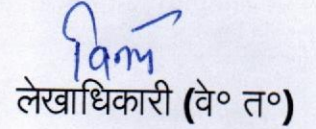 लेखाधिकारी (वे० त०)